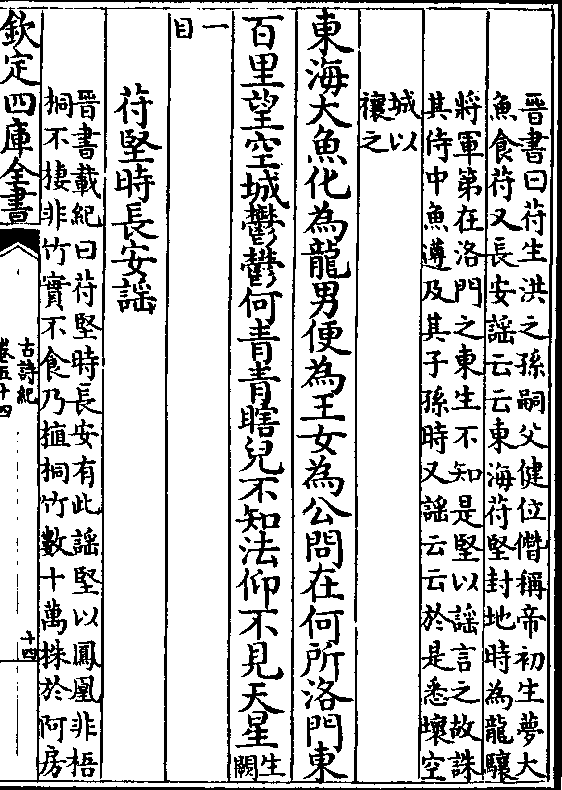 晉書曰苻生洪之孫嗣父健位僭稱帝初生夢大
魚食苻又長安謡云云東海苻堅封地時為龍驤
將軍第在洛門之東生不知是堅以謡言之故誅
其侍中魚遵及其子孫時又謡云云於是悉壞空
城以
禳之
東海大魚化為龍男便為王女為公問在何所洛門東
百里望空城鬱鬱何青青瞎兒不知法仰不見天星生闕
一
目
苻堅時長安謡
晉書載紀曰苻堅時長安有此謡堅以鳳凰非梧
桐不棲非竹實不食乃植桐竹數十萬株於阿房
欽定四庫全書
古詩紀
卷五十四
十四